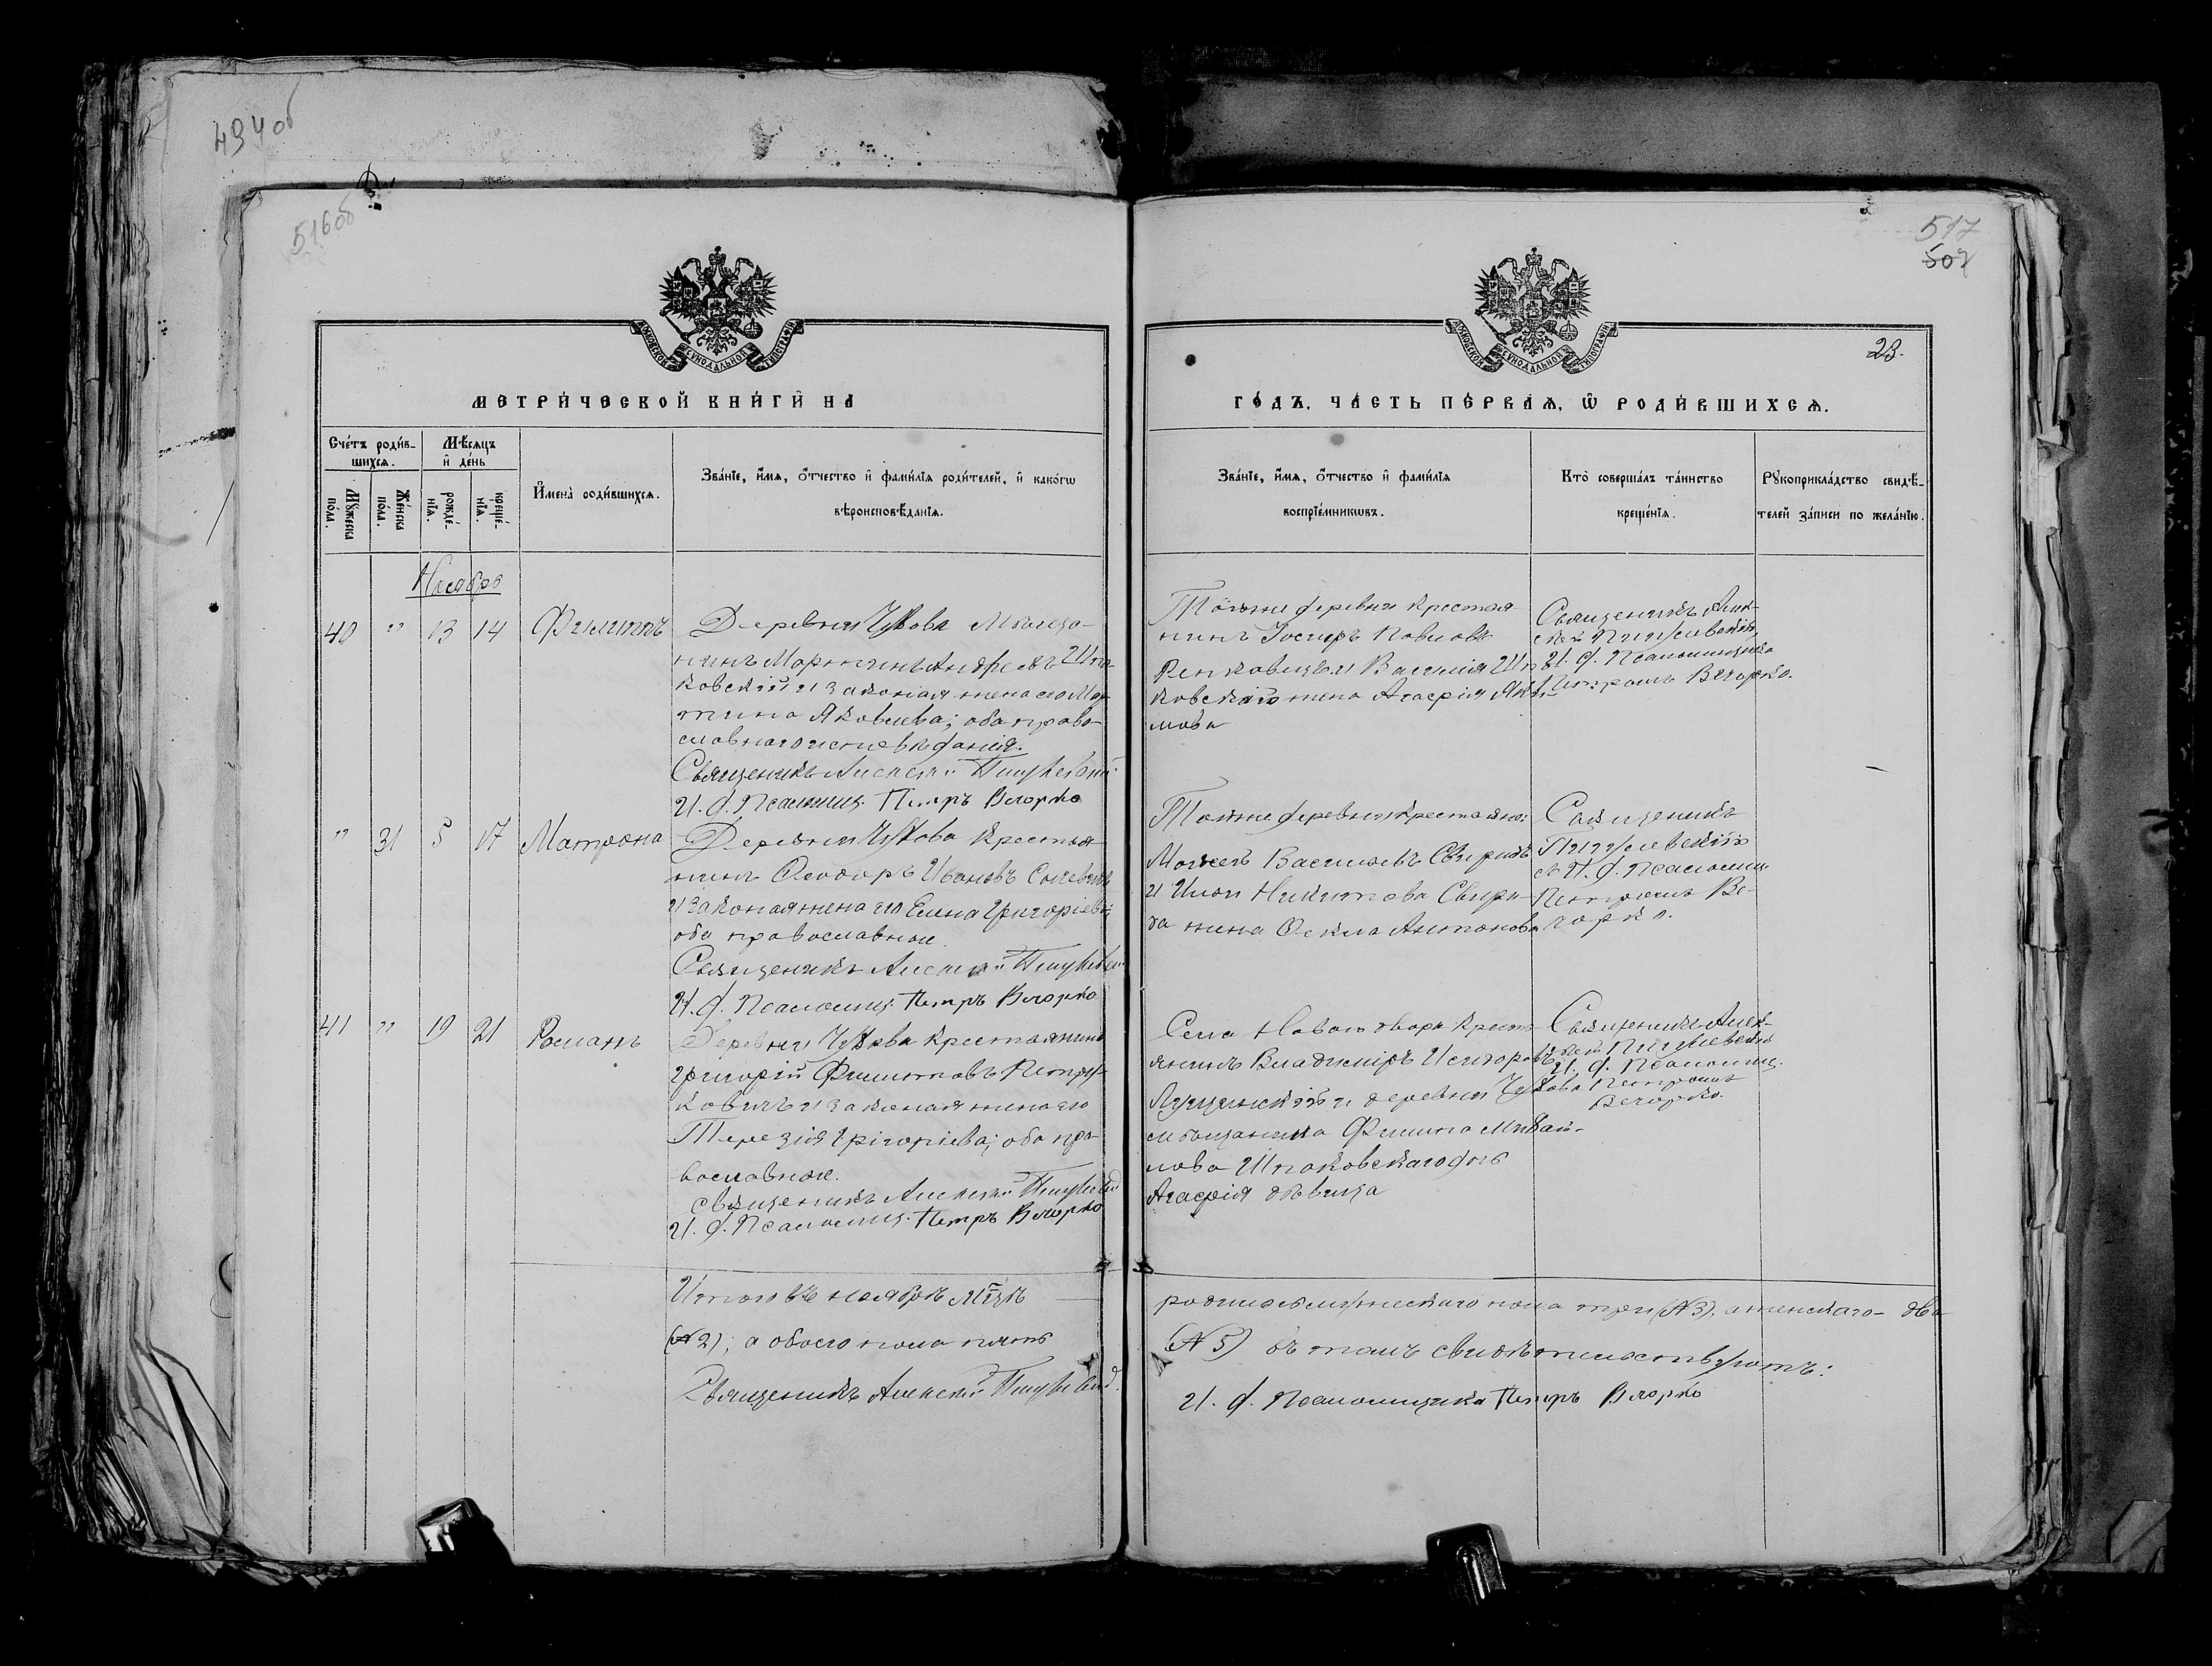 494об
516об
517
502
23.
МОСКОВСКОЙ СУНОДАЛЬНОЙ ТИПОГРАФІИ
МОСКОВСКОЙ СУНОДАЛЬНОЙ ТИПОГРАФІИ
МЕТРИ́ЧЕСКОЙ КНИ́ГИ НА
ГО́ДЪ, ЧА́СТЬ ПЕ́РВАЯ, Ѡ РОДИ́ВШИХСЯ.
Сче́тъ роди́в-
шихся.
Мѣ́сяцъ
и де́нь
Му́жеска
по́ла.
Же́нска
по́ла.
рожде́-
нїя.
креще́-
нїя.
И́мена роди́вшихся.
Зва́нїе, и́мя, о́тчество и фами́лїя роди́телей, и како́гѡ
вѣроисповѣ́данїя.
Зва́нїе, и́мя, о́тчество и фами́лїя
воспрїе́мникѡвъ.
Кто̀ соверша́лъ та́инство
креще́нїя.
Рукоприкла́дство свидѣ́-
телей за́писи по жела́нїю.
Ноябрь
40 " 13 14 Филиппъ
Деревни Чхова Мѣща-
нинъ Мартинъ Андреевъ Шпа-
ковскій и законая жена его Мар-
тина Яковлева; оба право-
славнаго исповѣданія.
Священикъ Алексѣй
И. д. Псаломщ. Петръ Вечорко
Тойже деревни крестья-
нинъ Іосифъ Павловъ
и Василія Шпа-
ковскаго жена Агафія Аки-
мова
Священикъ Алек-
сѣй
И. д. Псаломщика
Петромъ Вечорко.
" 31 5 17 Матрона
Деревни Чхова Крестья-
нинъ Ѳеодоръ Ивановъ
и законая жена его Елена Григоріева
оба православные.
Священикъ Алексѣй
И. д. Псаломщ. Петръ Вечорко
Тойже деревни крестьяне:
Моисей Васильевъ Свиридъ
и Ильи Никитова Свири-
да жена Ѳекла Антонова
Священикъ
съ И. д. Псаломщ.
Петромъ Ве-
чорко.
41 " 19 21 Романъ
Деревни Чхова крестьянинъ
Григорій Филиповъ Петру-
ковичъ и законая жена его
Терезія Григоріева; оба пра-
вославные.
священикъ Алексѣй
И. д. Псаломщ. Петръ Вечорко
Села Новаго двора крест-
янинъ Владиміръ Исидоровъ
Лущинскій и деревни Чхова
мѣщанина Филипа Михай-
лова Шпаковскаго дочь
Агафія дѣвица
Священикъ Алек-
сѣй
И. д. Псаломщ.
Петромъ
Вечорко.
Итого въ ноябрѣ мцѣ
родилось мужескаго пола три (№3), а женскаго- два
(№2); а обоего пола пять
(№5) въ томъ свидѣтельствуютъ:
Священикъ Алексѣй
И. д. Псаломщика Петръ Вечорко